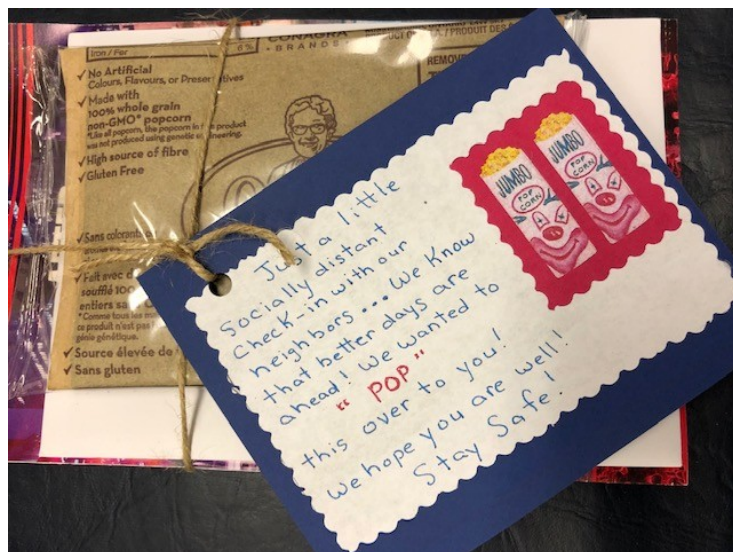 Iron / Fer 6%
CONAGRA
BRANDS
✓ No Artificial
Colours, Flavours, or Preservatives
✓ Made with
100% whole grain
non-GMO* popcorn
*Like all popcorn, the popcorn in this product
was not produced using genetic engineering.
✓ High source of fibre
✓ Gluten Free
✓ Sans
✓ Fait avec
soufflé 100
entiers sans
*Comme tous les
ce produit n'est pas
génie génétique.
✓ Source élevée de
✓ Sans gluten
/ PRODUIT DES
REMOVE
JUMBO
POP
CORN
JUMBO
POP
CORN
Just a little
Socially distant
Check-in with our
neighbors... We Know
that better days are
ahead! We wanted to
"POP"
this over to you!
We hope you are well!
Stay Safe!